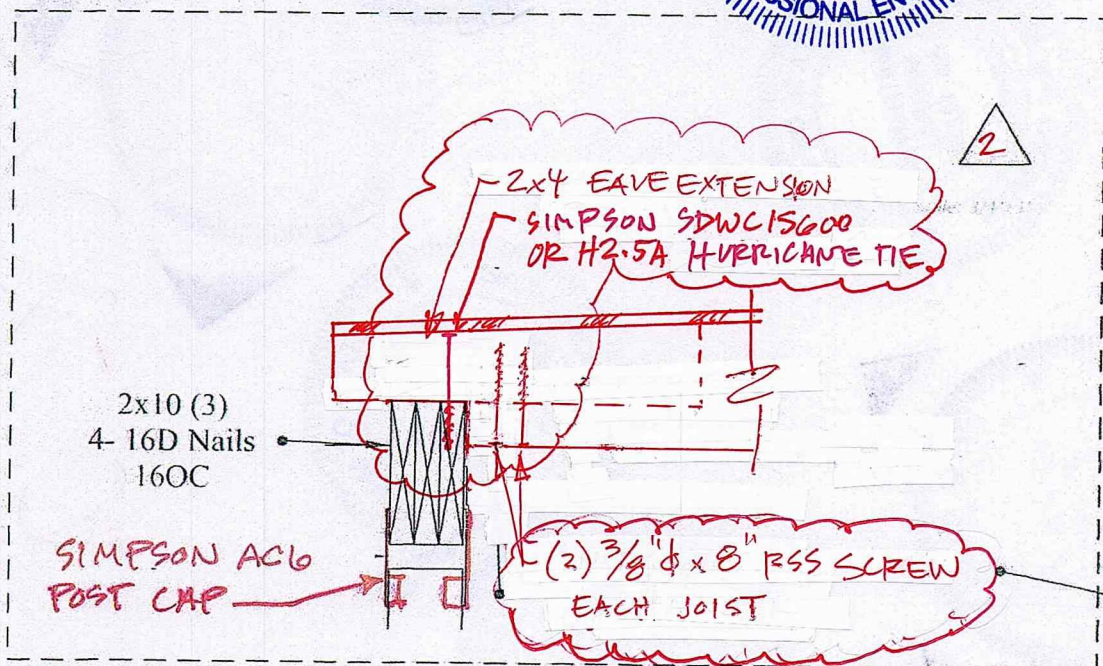 SIONAL EN
2
2x4 EAVE EXTENSION
SIMPSON SDWC15600
OR H2.5A HURRICANE TIE
2x10 (3)
4- 16D Nails
16OC
SIMPSON AC6
POST CAP
(2) 3/8"ϕ x 8" RSS SCREW
EACH JOIST